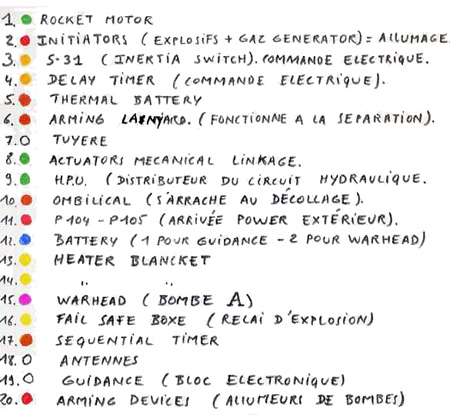 1. ROCKET MOTOR
2. INITIATORS (EXPLOSIFS + GAZ GENERATOR) = ALLUMAGE.
3. S-31 (INERTIA SWITCH). COMMANDE ELECTRIQUE.
4. DELAY TIMER (COMMANDE ELECTRIQUE).
5. THERMAL BATTERY
6. ARMING LANYARD. (FONCTIONNE A LA SEPARATION).
7. TUYERE
8. ACTUATORS MECANICAL LINKAGE.
9. H.P.U. (DISTRIBUTEUR DU CIRCUIT HYDRAULIQUE.
10. OMBILICAL (S'ARRACHE AU DÉCOLLAGE).
11. P104 - P105 (ARRIVÉE POWER EXTÉRIEUR).
12. BATTERY (1 POUR GUIDANCE - 2 POUR WARHEAD)
13. HEATER BLANCKET
14. " "
15. WARHEAD (BOMBE A)
16. FAIL SAFE BOXE (RELAI D'EXPLOSION)
17. SEQUENTIAL TIMER
18. ANTENNES
19. GUIDANCE (BLOC ELECTRONIQUE)
20. ARMING DEVICES (ALLUMEURS DE BOMBES)